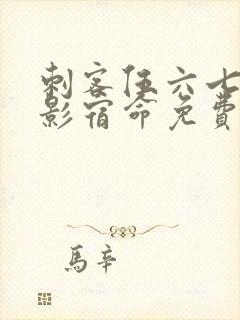 刺客伍六七
影宿命免費
馬辛